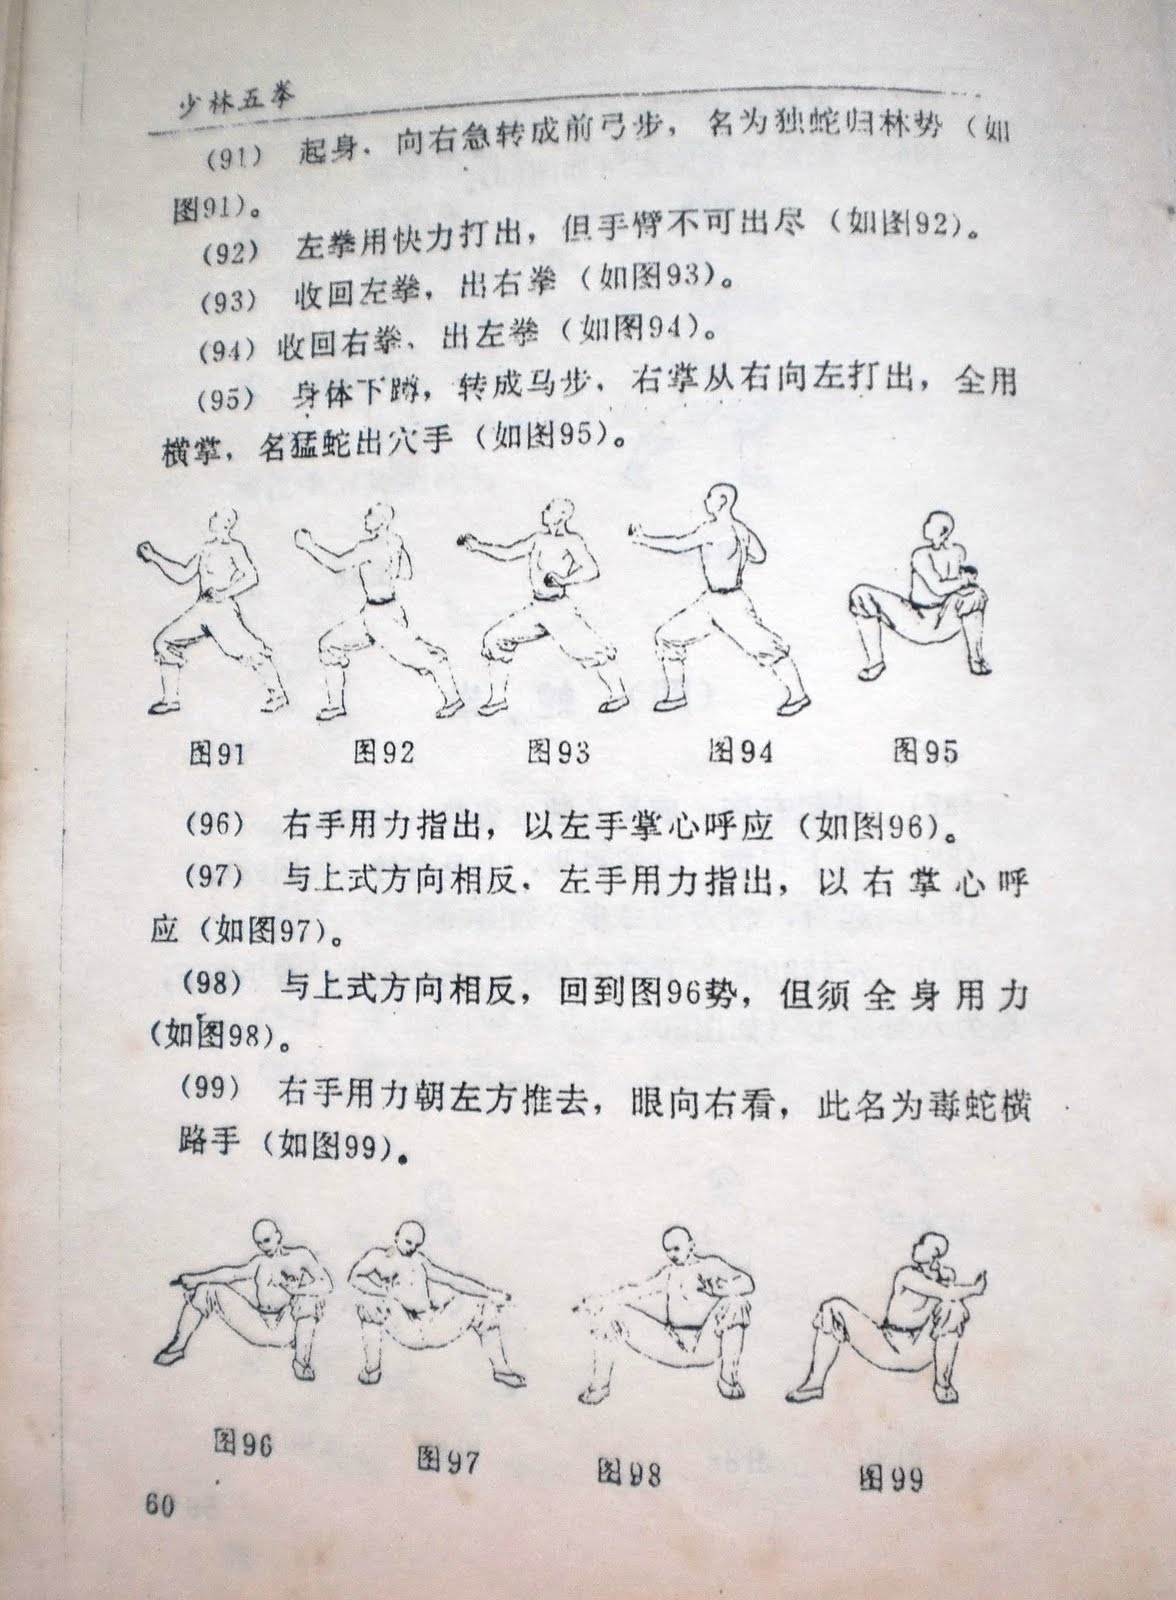 少林五拳
(91) 起身，向右急转成前弓步，名为独蛇归林势（如
图91)。
(92) 左拳用快力打出，但手臂不可出尽（如图92)。
(93) 收回左拳，出右拳（如图93)。
(94) 收回右拳，出左拳（如图94)。
(95) 身体下蹲，转成马步，右掌从右向左打出，全用
横掌，名猛蛇出穴手（如图95)。
图91 图92 图93 图94 图95
(96) 右手用力指出，以左手掌心呼应（如图96)。
(97) 与上式方向相反，左手用力指出，以右掌心呼
应（如图97)。
(98) 与上式方向相反，回到图96势，但须全身用力
(如图98)。
(99) 右手用力朝左方推去，眼向右看，此名为毒蛇横
路手（如图99)。
图96 图97 图98 图99
60